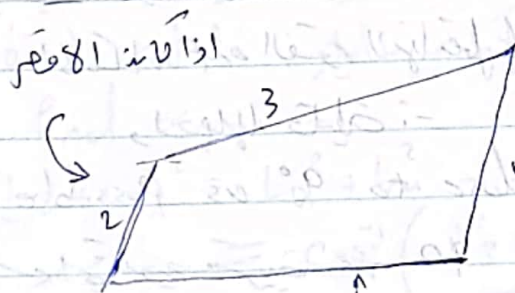 اذا كانت الاقصر
3
2